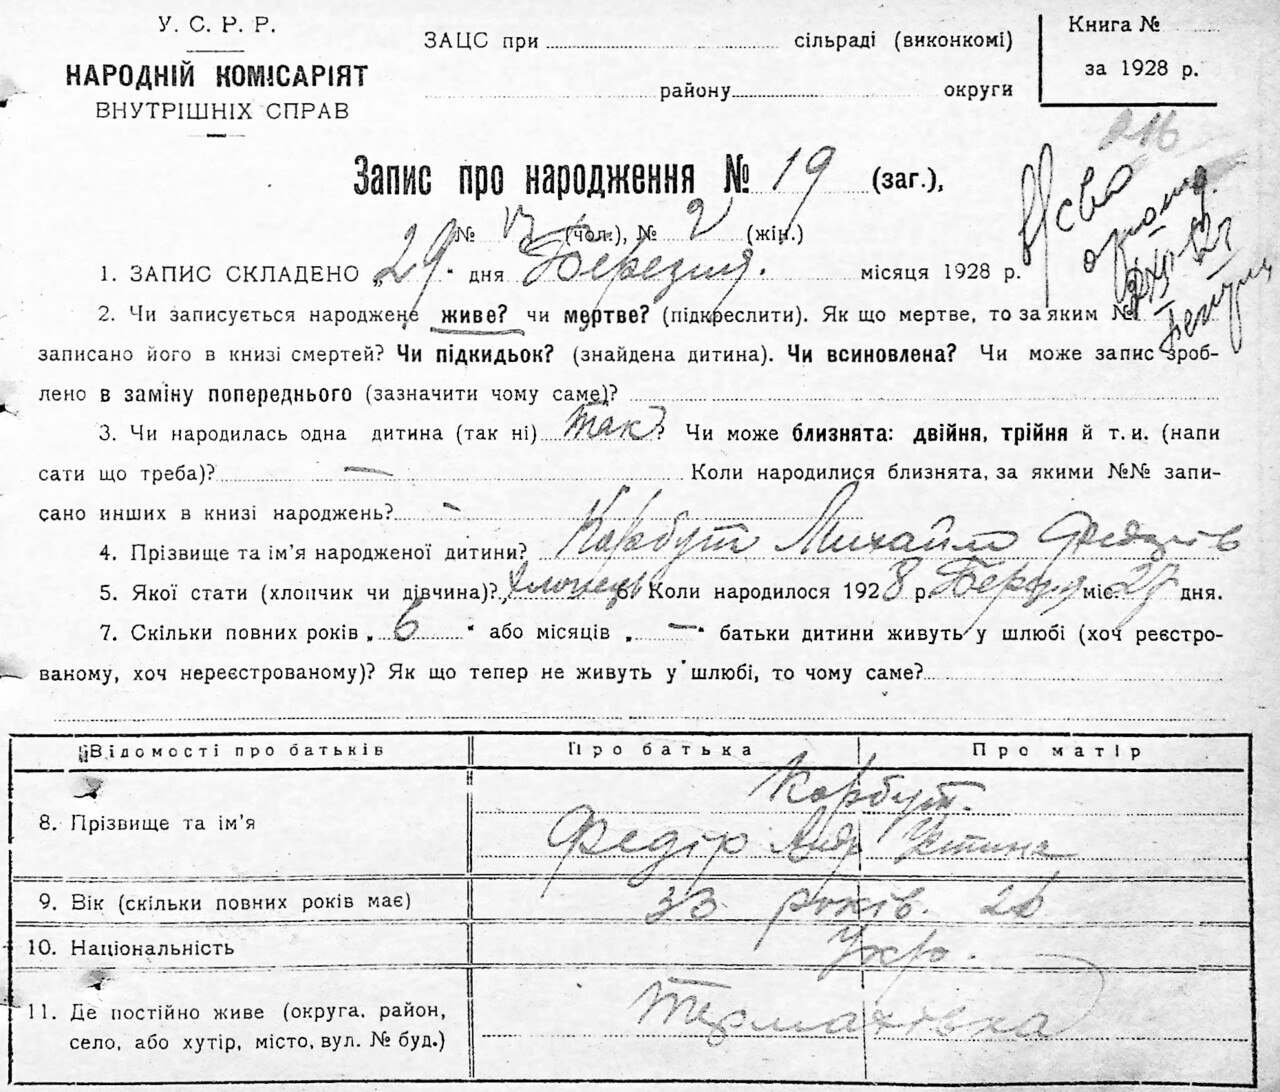 У. С. Р. Р.
НАРОДНІЙ КОМІСАРІЯТ
ВНУТРІШНІХ СПРАВ
ЗАЦС при сільраді (виконкомі)
району округи
Книга №
за 1928 р.
216
Запис про народження № 19 (заг.),
№ 17 (чол.), № 2 (жін.)
1. ЗАПИС СКЛАДЕНО „29" дня Березня. місяця 1928 р.
2. Чи записується народжене живе? чи мертве? (підкреслити). Як що мертве, то за яким №
записано його в книзі смертей? Чи підкидьок? (знайдена дитина). Чи всиновлена? Чи може запис зроб-
лено в заміну попереднього (зазначити чому саме)?
3. Чи народилась одна дитина (так ні) Так? Чи може близнята: двійня, трійня й т. и. (напи
сати що треба)? — Коли народилися близнята, за якими №№ запи-
сано инших в книзі народжень? -
4. Прізвище та ім'я народженої дитини? Корбут Михайло Федорів
5. Якої стати (хлопчик чи дівчина)? Хлопець 6. Коли народилося 1928 р. Березня міс. 29 дня.
7. Скільки повних років „6" або місяців „—" батьки дитини живуть у шлюбі (хоч реєстро-
ваному, хоч нереєстрованому)? Як що тепер не живуть у шлюбі, то чому саме?
Відомості про батьків Про батька Про матір
8. Прізвище та ім'я Корбут.
Федір Андр Устина
9. Вік (скільки повних років має) 33 років. 26
10. Національність Укр.
11. Де постійно живе (округа. район,
село, або хутір, місто, вул. № буд.) Термахівка